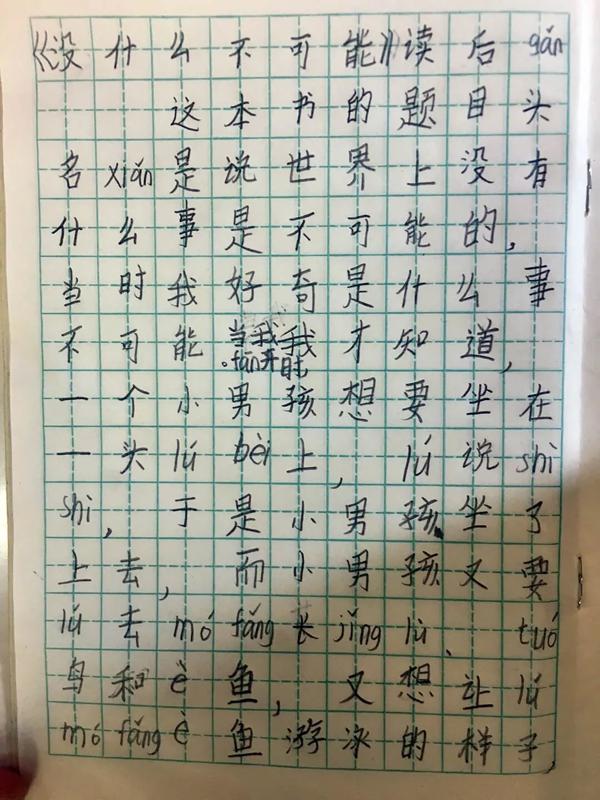 《没什么不可能》读后gǎn
这本书的题目头
名xiǎn是说世界上没有
什么事是不可能的,
当时我好奇是什么事
不可能。当我fān开时我才知道,
一个小男孩想要坐在
一头lú bèi上,lú说shì
shì,于是小男孩坐了
上去,而小男孩又要
lú去mó fǎng长jǐng lù、tuó
鸟和è鱼,又想让lú
mó fǎng è鱼游泳的样子,